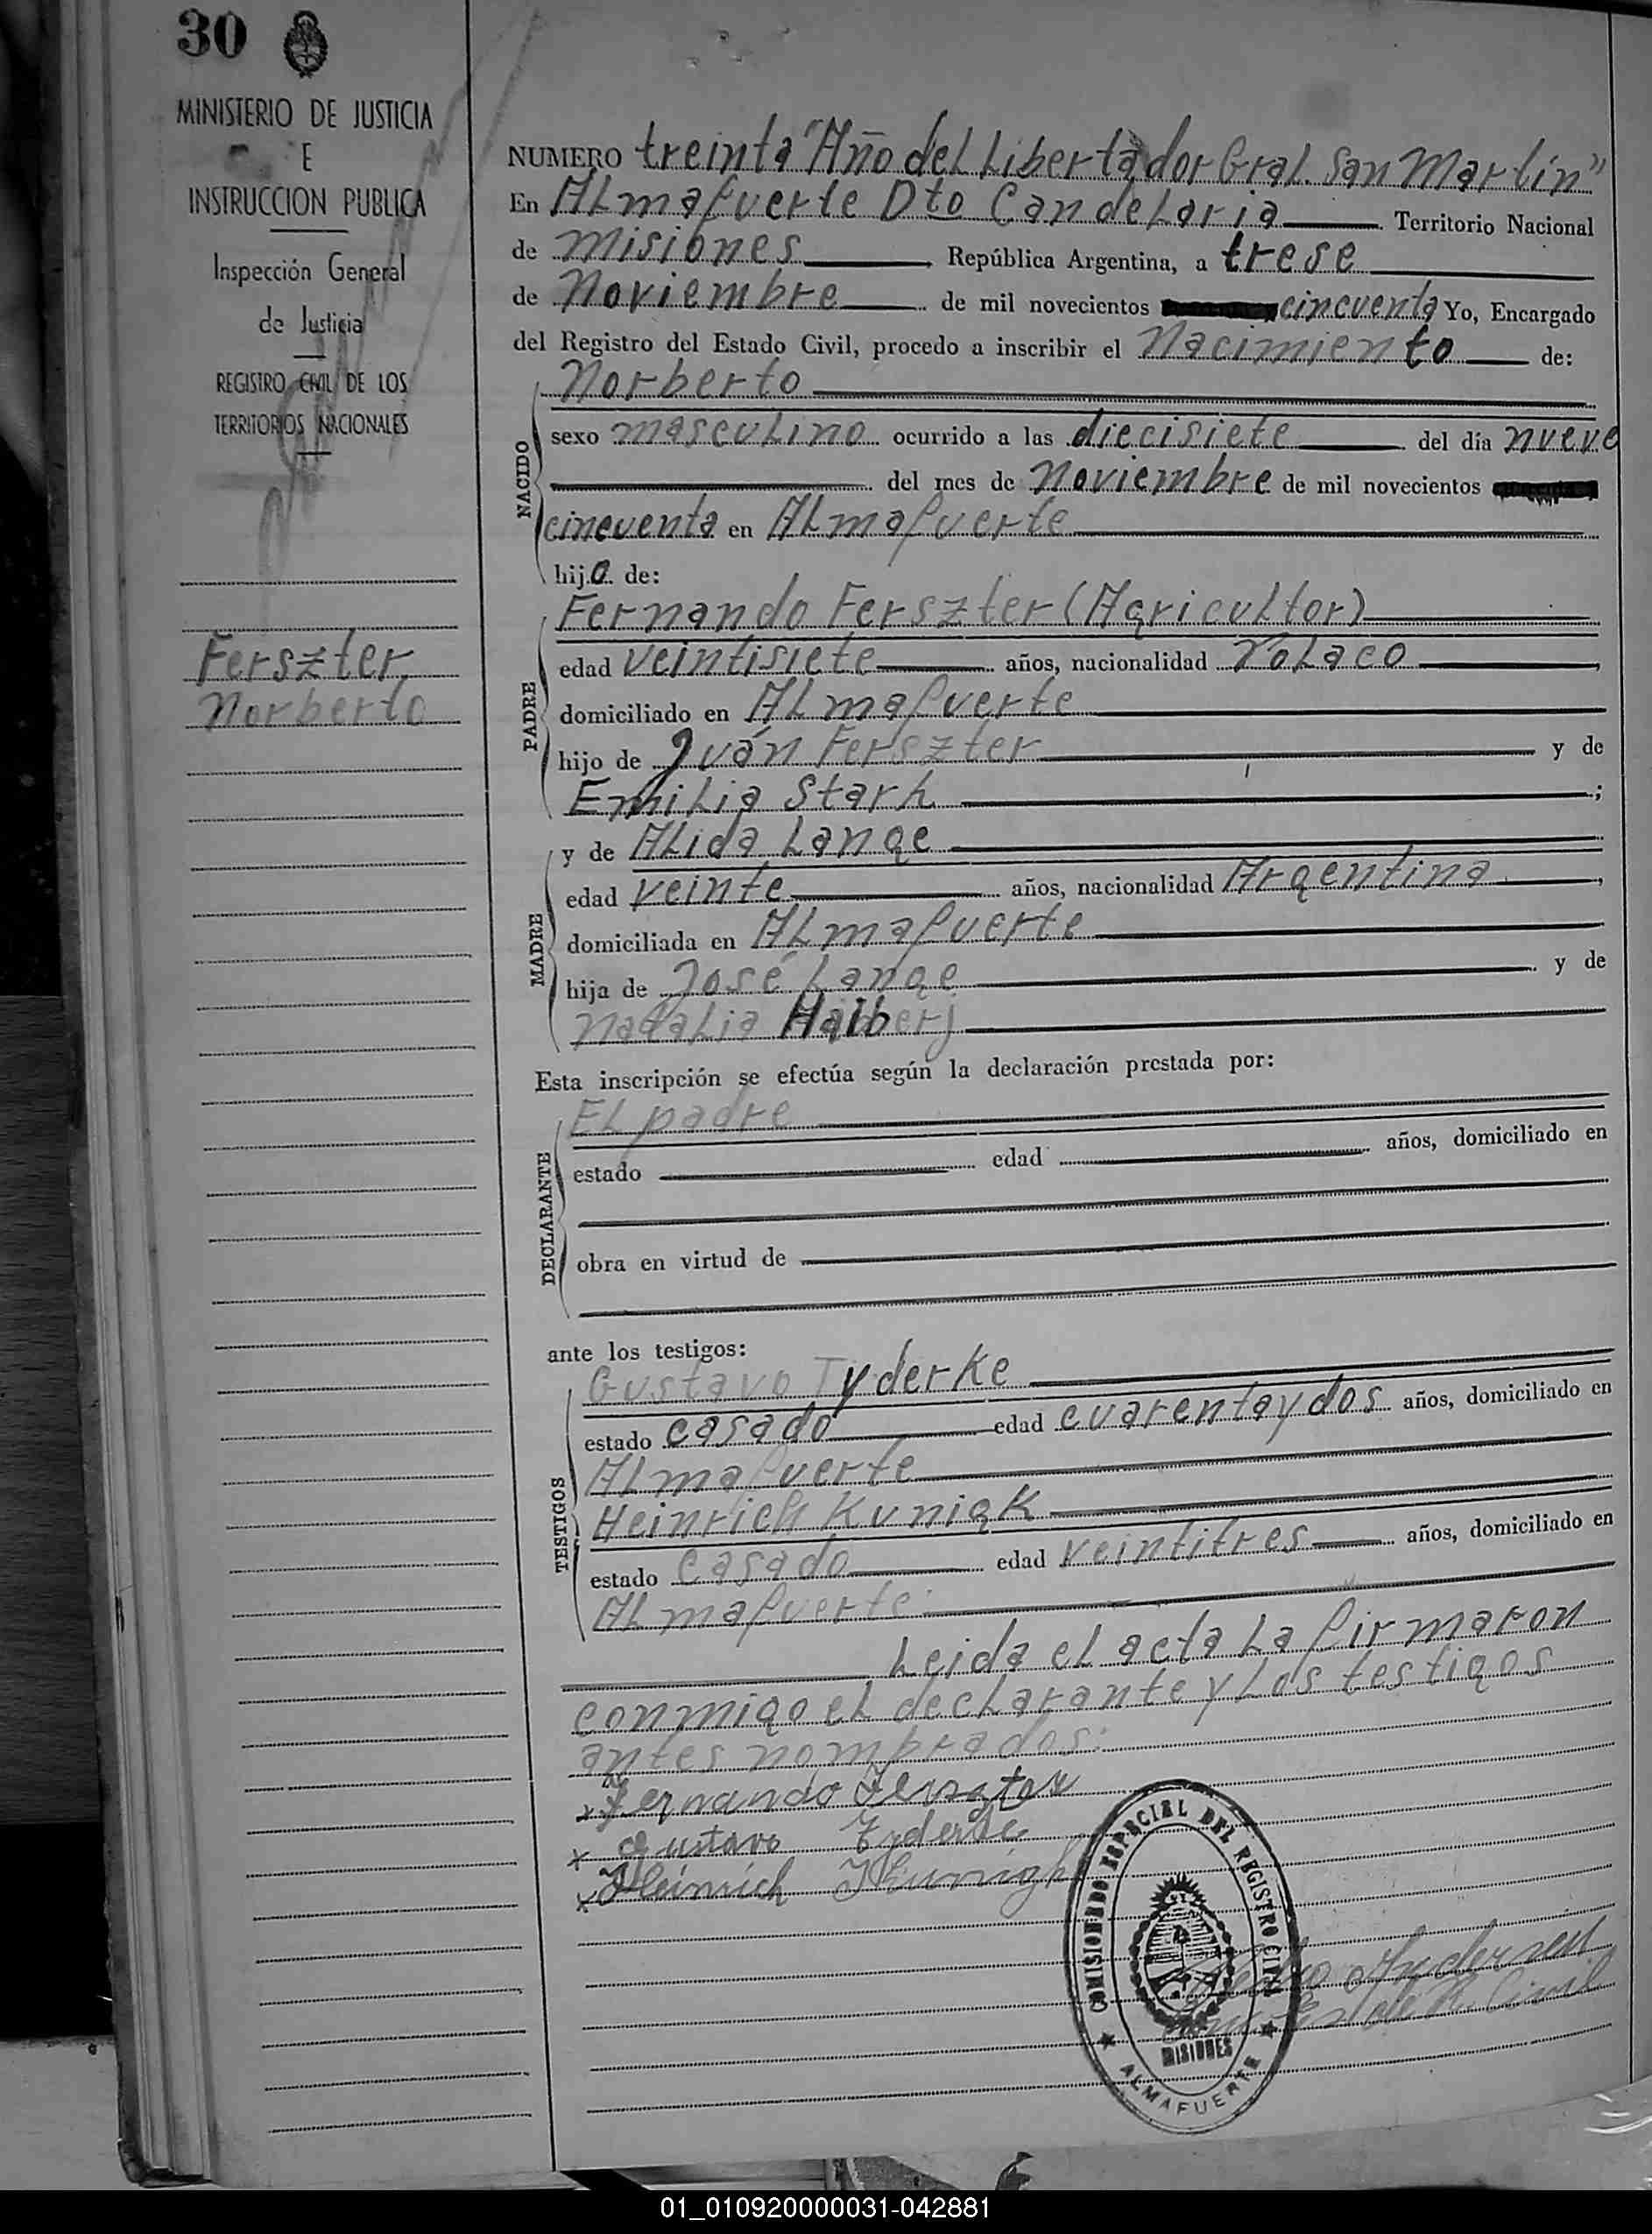 30
MINISTERIO DE JUSTICIA
E
INSTRUCCION PUBLICA
Inspección General
de Justicia
REGISTRO CIVIL DE LOS
TERRITORIOS NACIONALES
Ferszter,
Norberto
NUMERO treinta "Año del Libertador Gral. San Martín"
En Almafuerte Dto Candelaria Territorio Nacional
de Misiones República Argentina, a trese
de Noviembre de mil novecientos cincuenta Yo, Encargado
del Registro del Estado Civil, procedo a inscribir el Nacimiento de:
NACIDO
Norberto
sexo masculino ocurrido a las diecisiete del día nueve
del mes de Noviembre de mil novecientos
cincuenta en Almafuerte
hijo de:
PADRE
Fernando Ferszter (Agricultor)
edad veintisiete años, nacionalidad Polaco
domiciliado en Almafuerte
hijo de Iván Ferszter y de
Emilia Stark ;
MADRE
y de Alida Lange
edad veinte años, nacionalidad Argentina,
domiciliada en Almafuerte
hija de José Lange y de
Natalia Haiberj
Esta inscripción se efectúa según la declaración prestada por:
DECLARANTE
El padre
estado edad años, domiciliado en
obra en virtud de
ante los testigos:
TESTIGOS
Gustavo Tyderke
estado casado edad cuarenta y dos años, domiciliado en
Almafuerte
Heinrich Kunigk
estado casado edad veintitres años, domiciliado en
Almafuerte
Leida el acta la firmaron
conmigo el declarante y los testigos
antes nombrados:
x Fernando Ferszter
x Gustavo Tyderke
x Heinrich Kunigk
COMISIONADO ESPECIAL DEL REGISTRO CIVIL
MISIONES
ALMAFUERTE
Andersen
R. Civil
01_010920000031-042881